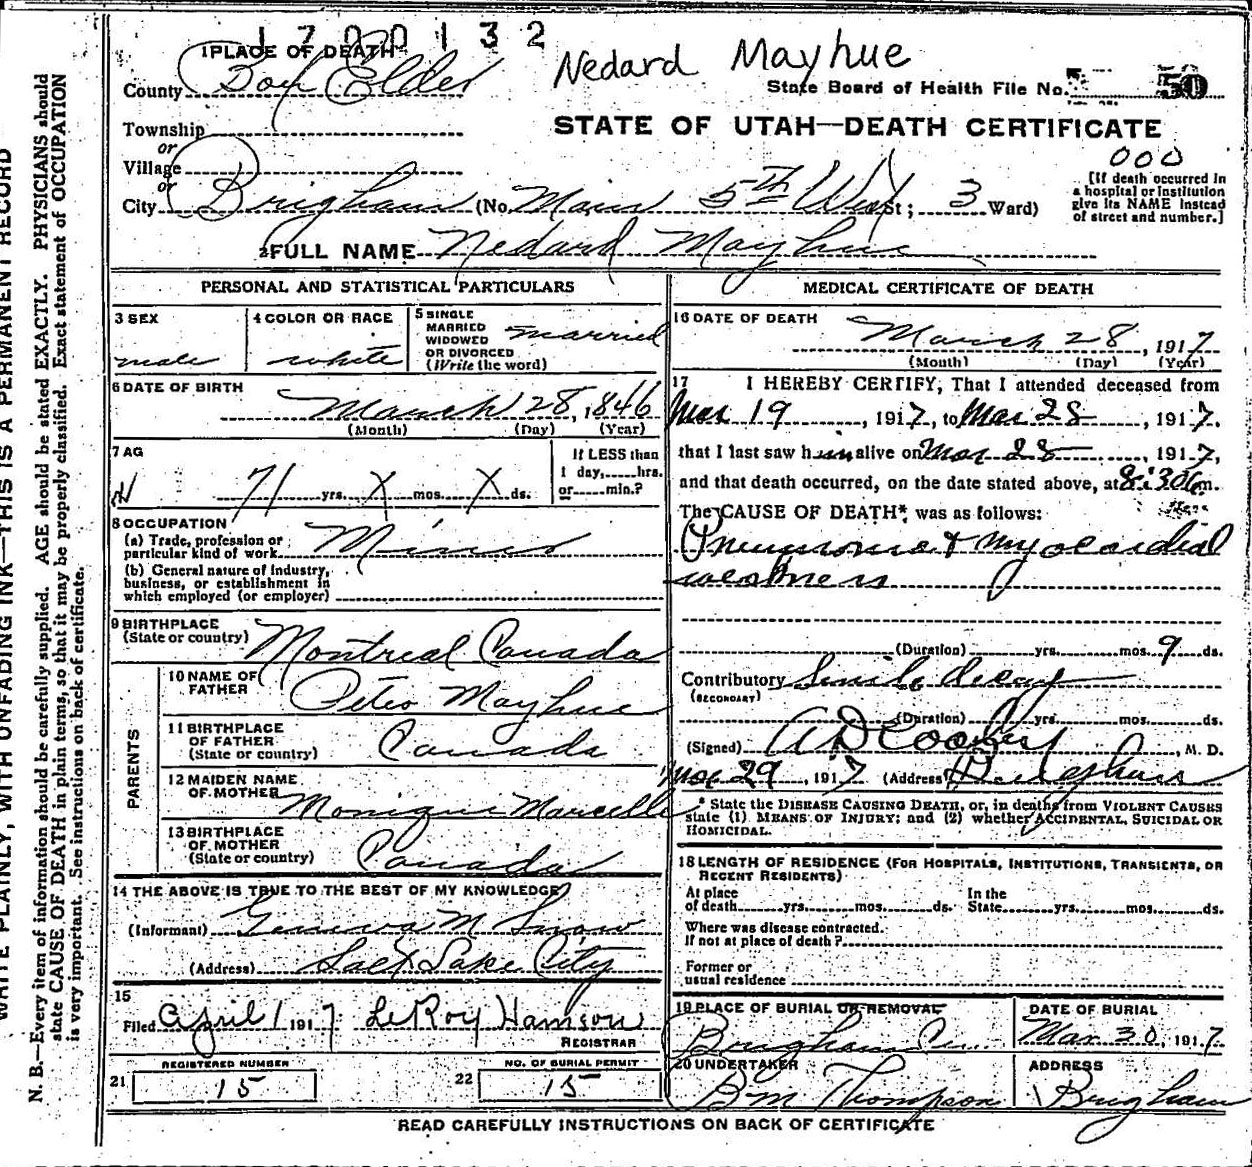 1700132
1 PLACE OF DEATH
Nedard Mayhue
County Box Elder
State Board of Health File No. 50
Township
STATE OF UTAH—DEATH CERTIFICATE
or
Village
000
or
City Brigham (No. Main 5th West St; 3 Ward)
[If death occurred in
a hospital or institution
give its NAME instead
of street and number.]
2 FULL NAME Nedard Mayhue
PERSONAL AND STATISTICAL PARTICULARS
3 SEX
male
4 COLOR OR RACE
white
5 SINGLE
MARRIED
WIDOWED
OR DIVORCED
(Write the word)
married
6 DATE OF BIRTH
March 28, 1846
(Month) (Day) (Year)
7 AG
71 yrs. X mos. X ds.
If LESS than
1 day, hrs.
or min.?
8 OCCUPATION
(a) Trade, profession or
particular kind of work Miner
(b) General nature of Industry,
business, or establishment in
which employed (or employer)
9 BIRTHPLACE
(State or country) Montreal Canada
PARENTS
10 NAME OF
FATHER Peter Mayhue
11 BIRTHPLACE
OF FATHER
(State or country) Canada
12 MAIDEN NAME
OF MOTHER Monique Marcelle
13 BIRTHPLACE
OF MOTHER
(State or country) Canada
14 THE ABOVE IS TRUE TO THE BEST OF MY KNOWLEDGE
(Informant) Geneva M Snow
(Address) Salt Lake City
15
Filed April 1 1917 LeRoy Hamson
REGISTRAR
REGISTERED NUMBER
21 15
NO. OF BURIAL PERMIT
22 15
MEDICAL CERTIFICATE OF DEATH
16 DATE OF DEATH
March 28, 1917
(Month) (Day) (Year)
17 I HEREBY CERTIFY, That I attended deceased from
Mar 19, 1917, to Mar 28, 1917.
that I last saw him alive on Mar 28, 1917,
and that death occurred, on the date stated above, at 8:30 m.
The CAUSE OF DEATH*, was as follows:
Pneumonia & Myocardial
weakness
(Duration) yrs. mos. 9 ds.
Contributory Senile decay
(SECONDARY)
(Duration) yrs. mos. ds.
(Signed) A D Cooley, M. D.
Mar 29, 1917 (Address)
* State the DISEASE CAUSING DEATH, or, in deaths from VIOLENT CAUSES
state (1) MEANS OF INJURY; and (2) whether ACCIDENTAL, SUICIDAL OR
HOMICIDAL.
18 LENGTH OF RESIDENCE (FOR HOSPITALS, INSTITUTIONS, TRANSIENTS, OR
RECENT RESIDENTS)
At place
of death yrs. mos. ds.
In the
State yrs. mos. ds.
Where was disease contracted.
If not at place of death?
Former or
usual residence
19 PLACE OF BURIAL OR REMOVAL
Brigham
DATE OF BURIAL
Mar 30, 1917
20 UNDERTAKER
B M Thompson
ADDRESS
Brigham
READ CAREFULLY INSTRUCTIONS ON BACK OF CERTIFICATE
WRITE PLAINLY, WITH UNFADING INK—THIS IS A PERMANENT RECORD
N. B.—Every item of information should be carefully supplied. AGE should be stated EXACTLY. PHYSICIANS should
state CAUSE OF DEATH in plain terms, so that it may be properly classified. Exact statement of OCCUPATION
is very important. See instructions on back of certificate.